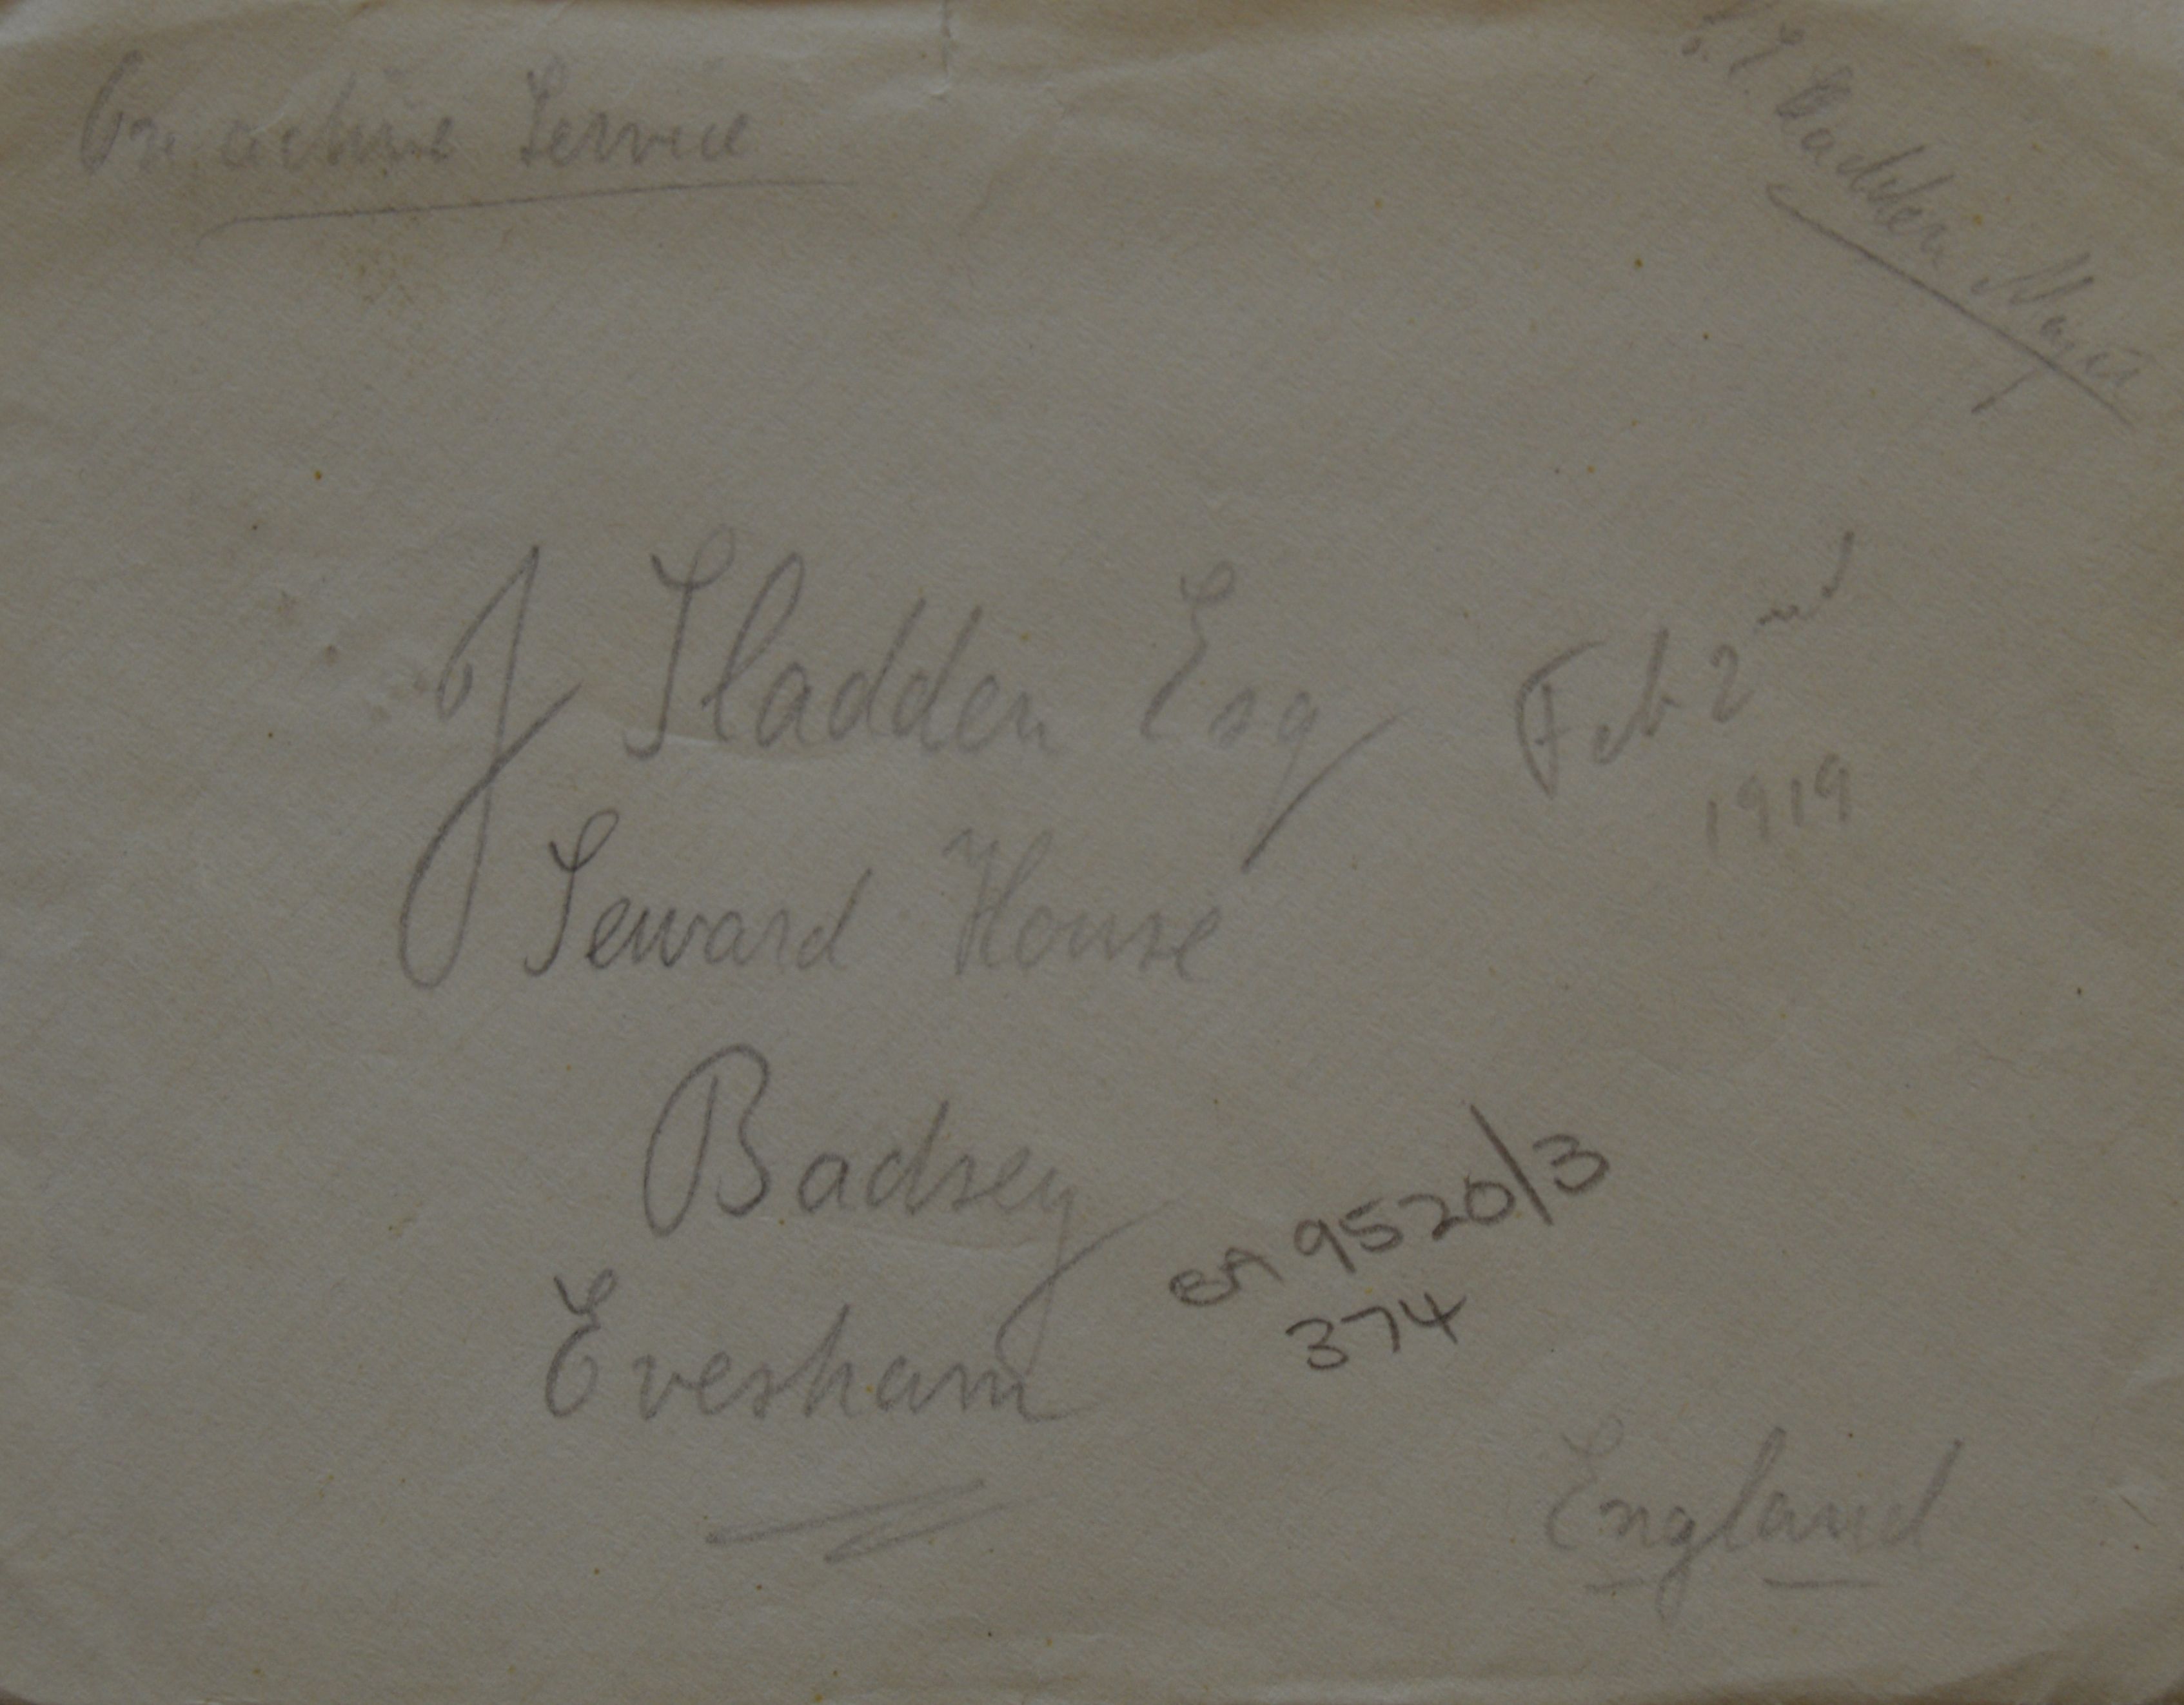 On active Service
Sladden Major
J Sladden Esq
Feb 2nd
1919
Seward House
Badsey
BA 9520/3
374
Evesham
England